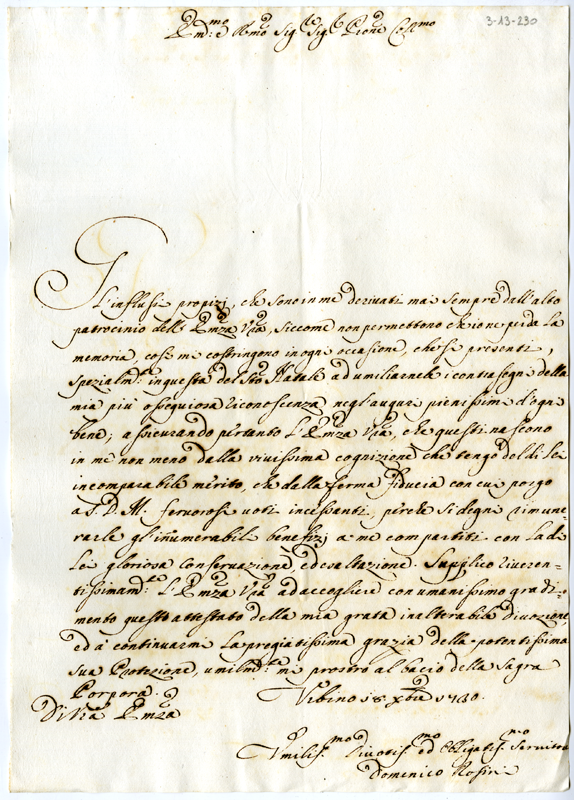 3-13-230
Em:mo e R:mo Sig:re Sig:r P:rone Col:mo
Gl'influssi propizj, che sono in me derivati mai sempre dall'alto
patrocinio dell'Em:za V:ra, siccome non permettono che io ne perda la
memoria, così mi costringono in ogni occasione, che si presenti,
spezialm:te in questa del S:to Natale ad umiliarnele i contrasegni della
mia più ossequiosa riconoscenza negl'augurj pienissimi d'ogni
bene; assicurando pertanto l'Em:za V:ra, che questi nascono
in me non meno dalla vivissima cognizione che tengo del di Lei
incomparabile merito, che dalla ferma fiducia con cui porgo
a S. D. M. fervorosi voti incessanti, perche si degni rimune-
rarle gl'inumerabili benefizj a me compartiti con la di
Lei gloriosa conservazione, ed esaltazione. Supplico riveren-
tissimam:te l'Em:za V:ra ad accogliere con umanissimo gradi-
mento questo attestato della mia grata inalterabile divozione
ed à continuarmi la pregiatissima grazia della potentissima
sua Protezione, e umilm:te mi prostro al bacio della Sagra
Porpora.
Urbino 18 Xbre 1730.
Di V:ra Em:za
Umiliss:mo Divotis:mo ed Obligatis:mo Servitore
Domenico Rosini